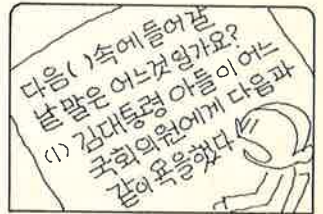 다음( )속에 들어갈
낱말은 어느것일가요?
(1) 김대통령 아들이 어느
국회의원에게 다음과
같이 욕을했다